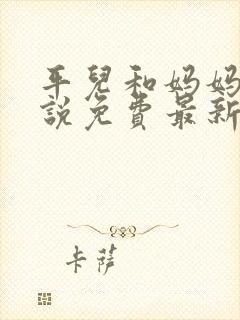 平兒和妈妈
説免費最新
卡萨